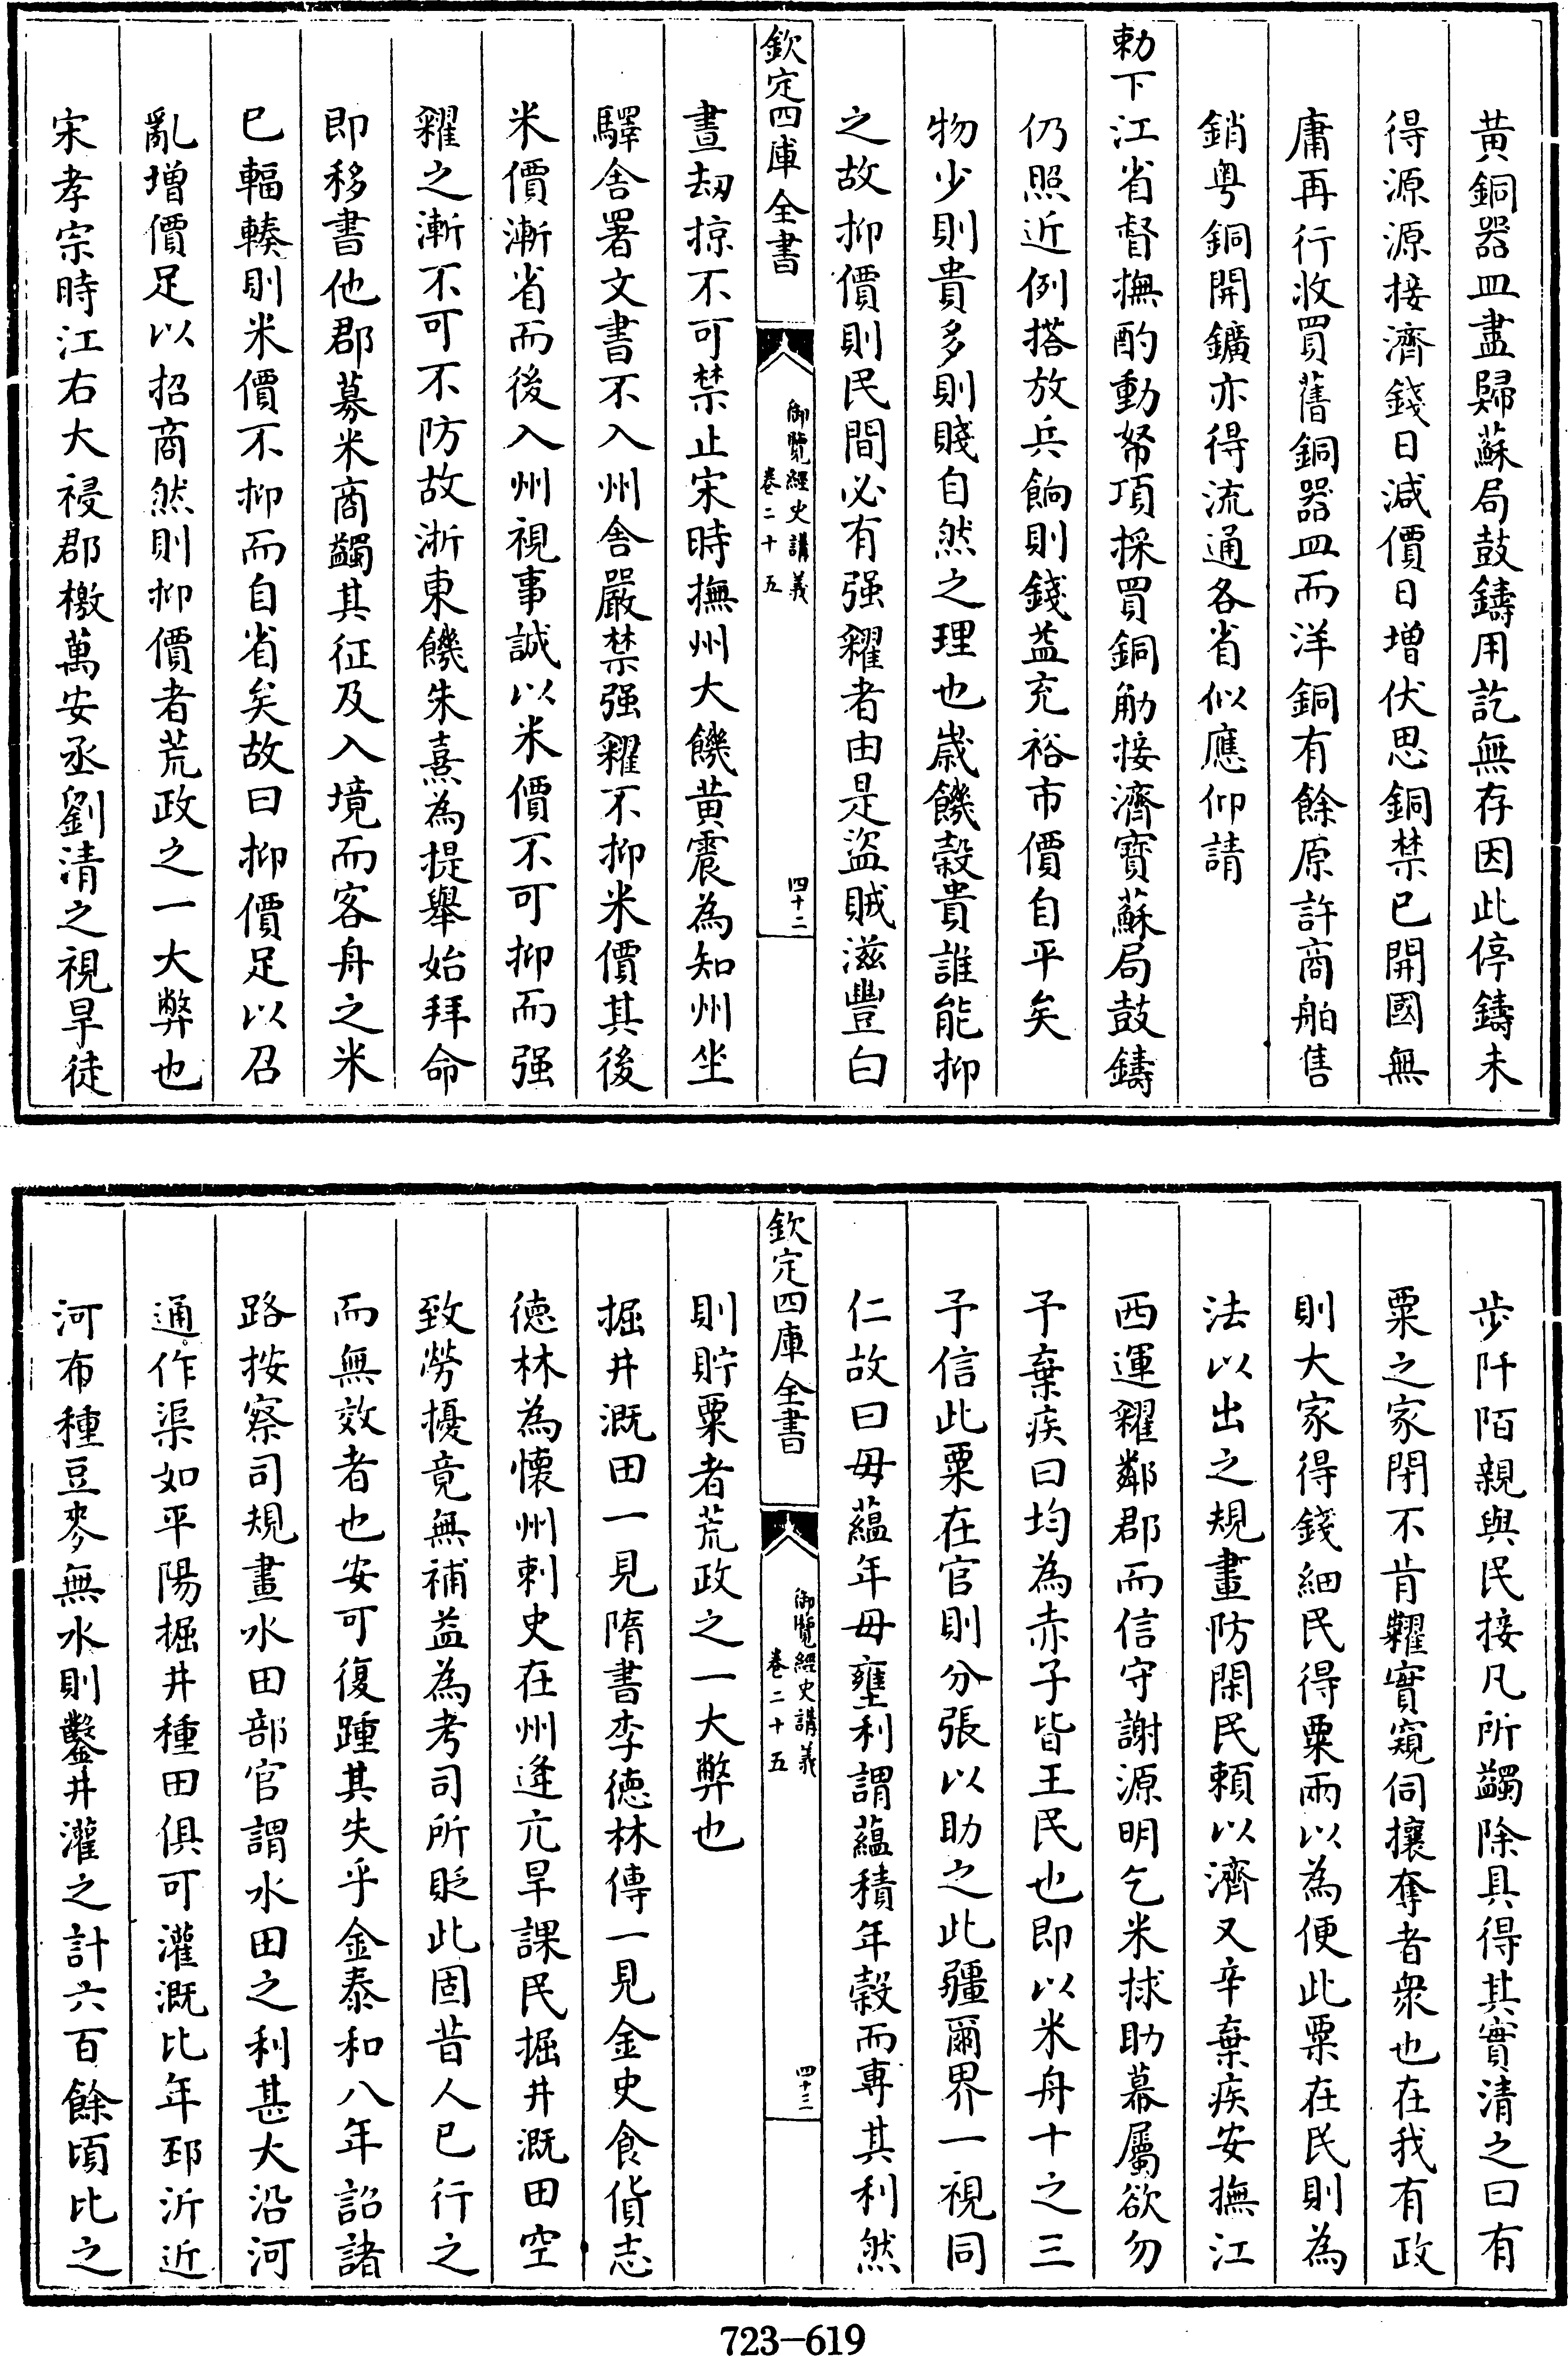 黄銅器皿盡歸蘇局鼓鑄用訖無存因此停鑄未
得源源接濟錢日減價日增伏思銅禁已開國無
庸再行收買舊銅器皿而洋銅有餘原許商舶售
銷粤銅開鑛亦得流通各省似應仰請
勅下江省督撫酌動帑項採買銅觔接濟寳蘇局鼓鑄
仍照近例搭放兵餉則錢益充裕市價自平矣
物少則貴多則賤自然之理也歲饑穀貴誰能抑
之故抑價則民間必有强糴者由是盜賊滋豐白
欽定四庫全書
御覽經史講義
卷二十五
四十二
晝刼掠不可禁止宋時撫州大饑黄震為知州坐
驛舍署文書不入州舍嚴禁强糴不抑米價其後
米價漸省而後入州視事誠以米價不可抑而强
糴之漸不可不防故浙東饑朱熹為提舉始拜命
即移書他郡募米商蠲其征及入境而客舟之米
已輻輳則米價不抑而自省矣故曰抑價足以召
亂增價足以招商然則抑價者荒政之一大弊也
宋孝宗時江右大祲郡檄萬安丞劉清之視旱徒
步阡陌親與民接凡所蠲除具得其實清之曰有
粟之家閉不肯糶實窺伺攘奪者衆也在我有政
則大家得錢細民得粟兩以為便此粟在民則為
法以出之規畫防閑民頼以濟又辛棄疾安撫江
西運糴鄰郡而信守謝源明乞米捄助幕屬欲勿
予棄疾曰均為赤子皆王民也即以米舟十之三
予信此粟在官則分張以助之此疆爾界一視同
仁故曰毋藴年毋壅利謂藴積年穀而專其利然
欽定四庫全書
御覽經史講義
卷二十五
四十三
則貯粟者荒政之一大弊也
掘井溉田一見隋書李徳林傳一見金史食貨志
徳林為懐州刺史在州逢亢旱課民掘井溉田空
致勞擾竟無補益為考司所貶此固昔人已行之
而無效者也安可復踵其失乎金泰和八年詔諸
路按察司規畫水田部官謂水田之利甚大沿河
通作渠如平陽掘井種田俱可灌溉比年邳沂近
河布種豆麥無水則鑿井灌之計六百餘頃比之
723-619